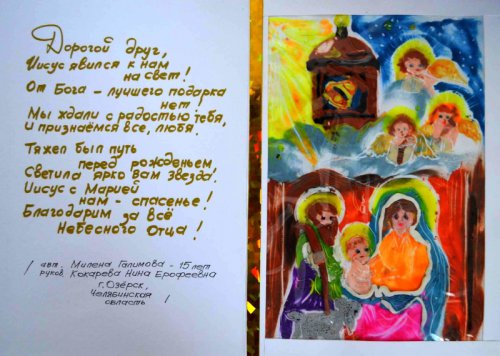 Дорогой друг,
Иисус явился к нам
на свет!
От Бога – лучшего подарка
нет!
Мы ждали с радостью тебя,
И признаёмся все, любя.
Тяжел был путь
перед рожденьем,
Светила ярко вам звезда!
Иисус с Марией
нам – спасенье!
Благодарим за всё
Небесного Отца!
/ авт. Милена Галимова – 15 лет
руков. Кокарева Нина Ерофеевна
г. Озёрск,
Челябинская
область /